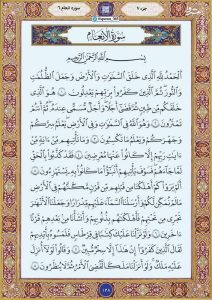 جزء ٧
سوره انعام ٦
سُورَةُ الأَنْعَامِ
بِسْمِ اللَّهِ الرَّحْمَٰنِ الرَّحِيمِ
الْحَمْدُ لِلَّهِ الَّذِي خَلَقَ السَّمَاوَاتِ وَالْأَرْضَ وَجَعَلَ الظُّلُمَاتِ
وَالنُّورَ ثُمَّ الَّذِينَ كَفَرُوا بِرَبِّهِمْ يَعْدِلُونَ ﴿١﴾ هُوَ الَّذِي
خَلَقَكُمْ مِنْ طِينٍ ثُمَّ قَضَىٰ أَجَلًا وَأَجَلٌ مُسَمًّى عِنْدَهُ ثُمَّ أَنْتُمْ
تَمْتَرُونَ ﴿٢﴾ وَهُوَ اللَّهُ فِي السَّمَاوَاتِ وَفِي الْأَرْضِ يَعْلَمُ سِرَّكُمْ
وَجَهْرَكُمْ وَيَعْلَمُ مَا تَكْسِبُونَ ﴿٣﴾ وَمَا تَأْتِيهِمْ مِنْ آيَةٍ مِنْ
آيَاتِ رَبِّهِمْ إِلَّا كَانُوا عَنْهَا مُعْرِضِينَ ﴿٤﴾ فَقَدْ كَذَّبُوا بِالْحَقِّ
لَمَّا جَاءَهُمْ فَسَوْفَ يَأْتِيهِمْ أَنْبَاءُ مَا كَانُوا بِهِ يَسْتَهْزِئُونَ ﴿٥﴾
أَلَمْ يَرَوْا كَمْ أَهْلَكْنَا مِنْ قَبْلِهِمْ مِنْ قَرْنٍ مَكَّنَّاهُمْ فِي الْأَرْضِ
مَا لَمْ نُمَكِّنْ لَكُمْ وَأَرْسَلْنَا السَّمَاءَ عَلَيْهِمْ مِدْرَارًا وَجَعَلْنَا الْأَنْهَارَ
تَجْرِي مِنْ تَحْتِهِمْ فَأَهْلَكْنَاهُمْ بِذُنُوبِهِمْ وَأَنْشَأْنَا مِنْ بَعْدِهِمْ قَرْنًا
آخَرِينَ ﴿٦﴾ وَلَوْ نَزَّلْنَا عَلَيْكَ كِتَابًا فِي قِرْطَاسٍ فَلَمَسُوهُ بِأَيْدِيهِمْ
لَقَالَ الَّذِينَ كَفَرُوا إِنْ هَٰذَا إِلَّا سِحْرٌ مُبِينٌ ﴿٧﴾ وَقَالُوا لَوْلَا أُنْزِلَ
عَلَيْهِ مَلَكٌ وَلَوْ أَنْزَلْنَا مَلَكًا لَقُضِيَ الْأَمْرُ ثُمَّ لَا يُنْظَرُونَ ﴿٨﴾
١٢٨